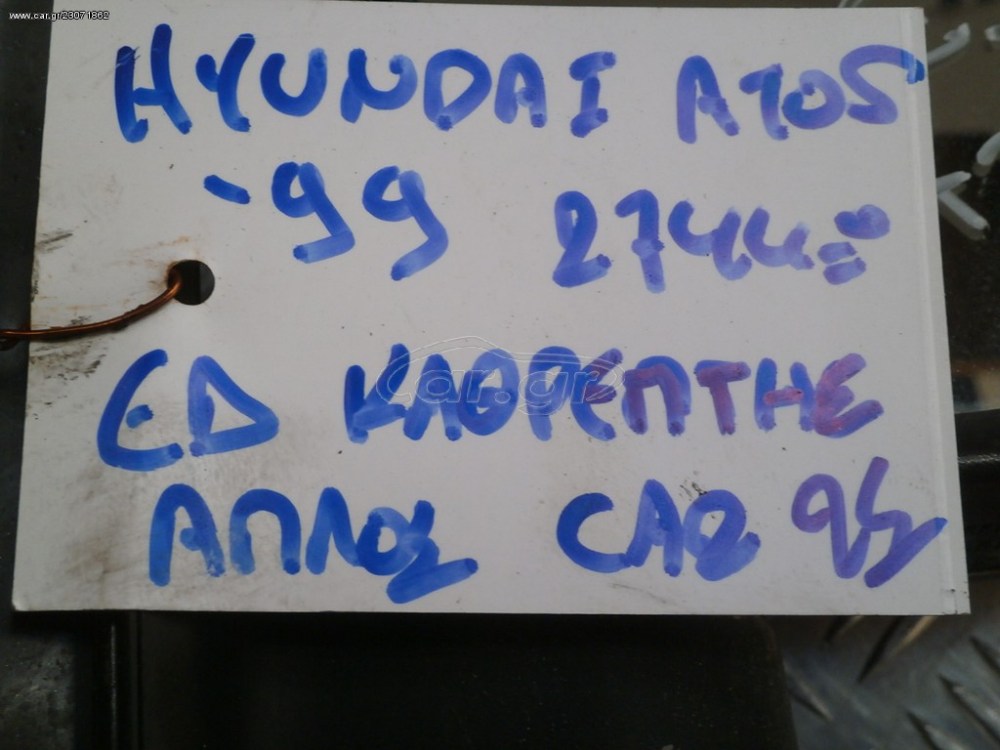 www.car.gr/23071862
HYUNDAI ATOS
-99
ΕΔ ΚΑΘΡΕΠΤΗΣ
ΑΠΛΟΣ
car.gr